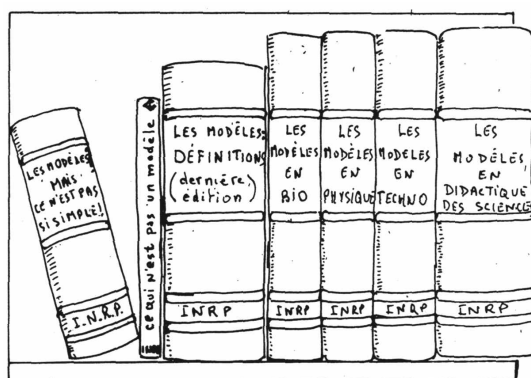 LES MODÈLES
MAIS
CE N'EST PAS
SI SIMPLE!
I.N.R.P.
ce qui n'est pas un modèle
INRP
LES MODÈLES:
DÉFINITIONS
(dernière
édition)
INRP
LES
MODÈLES
EN
BIO
INRP
LES
MODÈLES
EN
PHYSIQUE
INRP
LES
MODÈLES
EN
TECHNO
INRP
LES
MODÈLES
EN
DIDACTIQUE
DES SCIENCES
INRP